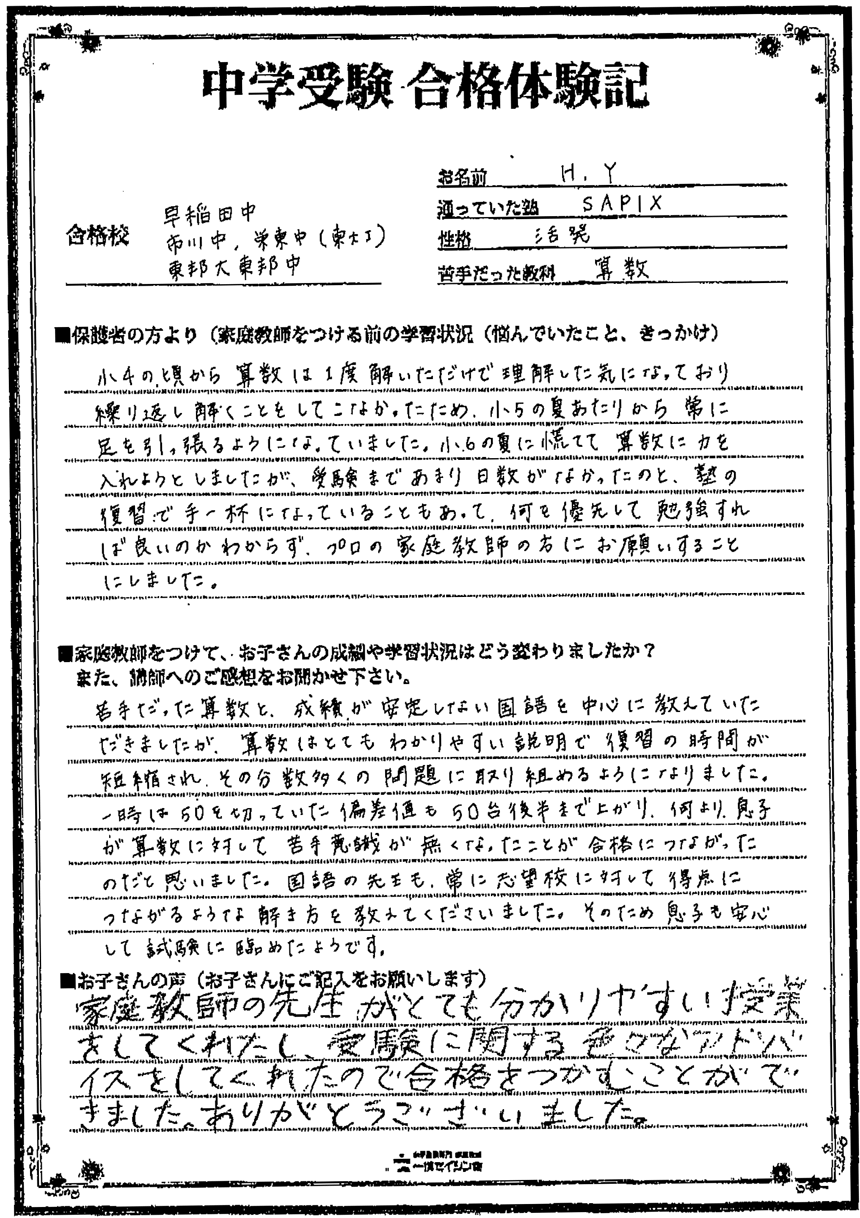 中学受験 合格体験記
お名前 H.Y
通っていた塾 SAPIX
性格 活発
苦手だった教科 算数
合格校
早稲田中
市川中, 栄東中(東大Ⅰ)
東邦大東邦中
■保護者の方より(家庭教師をつける前の学習状況(悩んでいたこと、きっかけ)
小4の頃から算数は1度解いただけで理解した気になっており
繰り返し解くことをしてこなかったため、小5の夏あたりから常に
足を引っ張るようになっていました。小6の夏に慌てて算数に力を
入れようとしましたが、受験まであまり日数がなかったのと、塾の
復習で手一杯になっていることもあって、何を優先して勉強すれ
ば良いのかわからず、プロの家庭教師の方にお願いすること
にしました。
■家庭教師をつけて、お子さんの成績や学習状況はどう変わりましたか?
また、講師へのご感想をお聞かせ下さい。
苦手だった算数と、成績が安定しない国語を中心に教えていた
だきましたが、算数はとてもわかりやすい説明で復習の時間が
短縮され、その分数多くの問題に取り組めるようになりました。
一時は50を切っていた偏差値も50台後半まで上がり、何より、息子
が算数に対して苦手意識が無くなったことが合格につながった
のだと思いました。国語の先生も、常に志望校に対して得点に
つながるような解き方を教えてくださいました。そのため息子も安心
して試験に臨めたようです。
■お子さんの声(お子さんにご記入をお願いします)
家庭教師の先生がとても分かりやすい授業
をしてくれたし、受験に関する色々なアドバ
イスをしてくれたので合格をつかむことがで
きました。ありがとうございました。